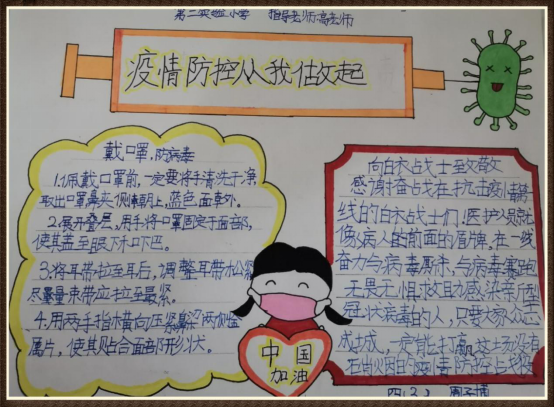 第二实验小学 指导老师:高老师
疫情防控从我做起
戴口罩,防病毒
1.佩戴口罩前,一定要将手清洗干净
取出口罩鼻夹侧朝上,蓝色面朝外.
2.展开叠层,用手将口罩固定于面部,
使其盖至眼下和下巴。
3.将耳带拉至耳后,调整耳带松紧
尽量束带应拉至最紧.
4.用两手指横向压紧鼻梁两侧金
属片,使其贴合面部形状。
中国
加油
向白衣战士致敬
感谢奋战在抗击疫情
线的白衣战士们,医护人员就
像病人的前面的盾牌.在一线
奋力与病毒厮杀,与病毒赛跑
无畏无惧救助感染新型
冠状病毒的人,只要大家众志
成城,一定能打赢这场没有
硝烟的疫情防控战役
四(2)